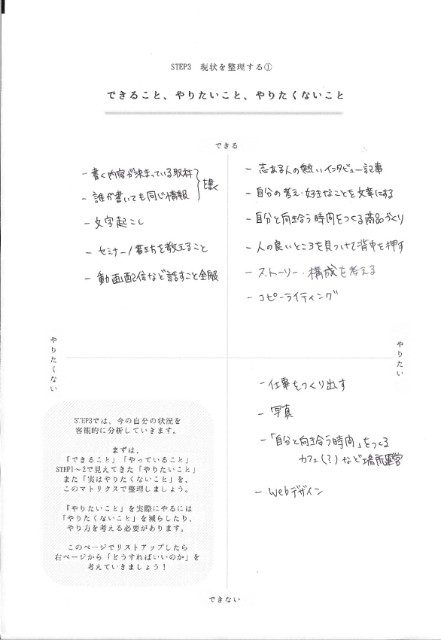 STEP3 現状を整理する①
できること、やりたいこと、やりたくないこと
できる
- 書く内容が決まっている取材
- 誰が書いても同じ情報
を書く
- 文字起こし
- セミナー/書き方を教えること
- 動画配信など話すこと全般
- 志ある人の熱いインタビュー記事
- 自分の考え・好きなことを文章にする
- 自分と向き合う時間をつくる商品づくり
- 人の良いところを見つけて背中を押す
- ストーリー・構成を考える
- コピーライティング
やりたくない
やりたい
- 仕事をつくり出す
- 写真
- 「自分と向き合う時間」をつくる
カフェ(?)など場所運営
- Webデザイン
STEP3では、今の自分の状況を
客観的に分析していきます。
まずは、
「できること」「やっていること」
STEP1〜2で見えてきた「やりたいこと」
また「実はやりたくないこと」を、
このマトリクスで整理しましょう。
「やりたいこと」を実際にやるには
「やりたくないこと」を減らしたり、
やり方を考える必要があります。
このページでリストアップしたら
右ページから「どうすればいいのか」を
考えていきましょう！
できない